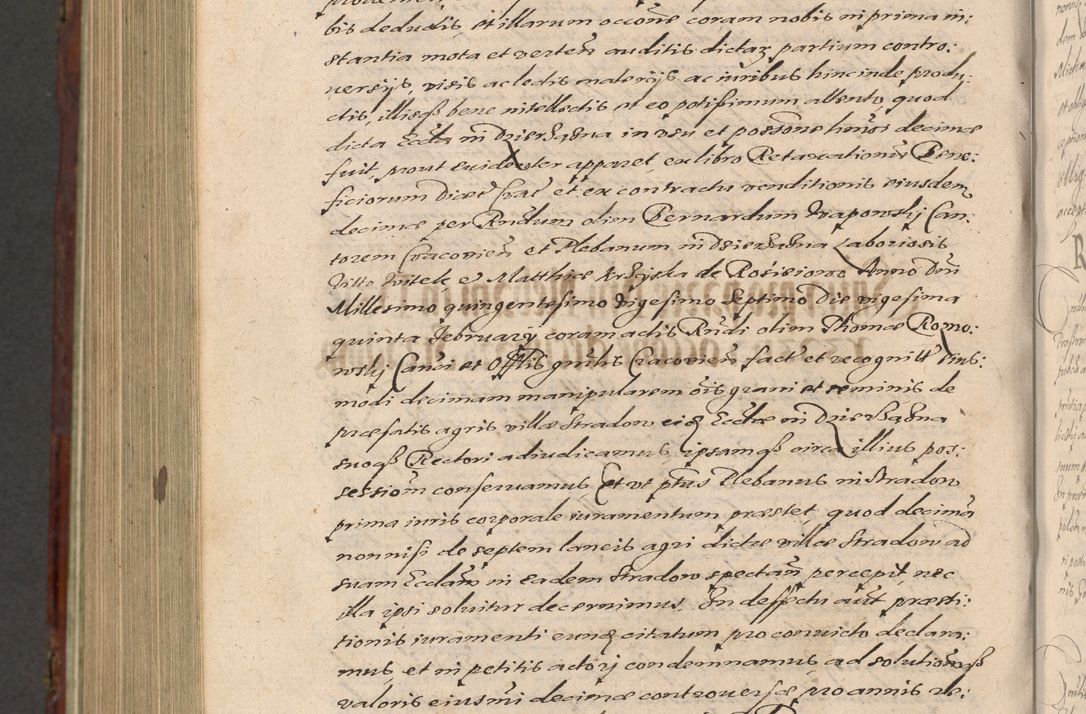 bis dedudis, et illarum occone coram nobis in prima in:
stantia mota et verten auditis dictar partium contro:
uersijs, visis ac lectis materijs ac iuribus hinc inde produ:
ctis, illisqz bene intellectis et eo potissimum attento, quod
dicta Eccta in Dzierążna in vsu et possone huios decimæ
fuit, prout euidenter apparet ex libro Retaxationis Bene:
ficiorum Dicæ Crac et ex contractu venditionis eiusdem
decimæ per Rndum olim Bernardum Wapowskij Can:
torem Cracovien et Plebanum in Dzierążna Laboriosis
Anno Dni
Millesimo quingentesimo vigesimo septimo Die vigesima
quinta Februarij coram actis Rndi olim Thomæ Rozno:
wskj Canci et Offtis gnlis Cracovien fact et recognitt eius:
modi decimam manipularem ois grani et seminis de
præfatis agris villæ Stradow eidz Ecctæ in Dzierążna
suoqz Rectori adiudicamus, ipsamqz circa illius pos:
sessiom conseruamus, Et vt ptus Plebanus in Stradow
prima iuris corporale iuramentum præstet, quod decimā
nonnisi de septem laneis agri dictæ villæ Stradow ad
suam Ecclam in eadem Stradow spectan percepit, nec
illa ipsi soluitur decernimus, In defectu aut præsti:
tionis iuramenti eundz citatum pro conuicto declara:
mus, et in petitis actorj condemnamus, ad solutionemqz
valoris eiusmi decimæ controuersæ pro annis re: